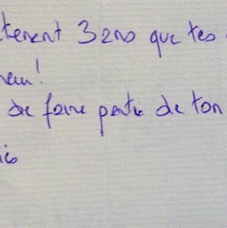 tenent 3 ans que tes
neu!
de faire partie de ton
is